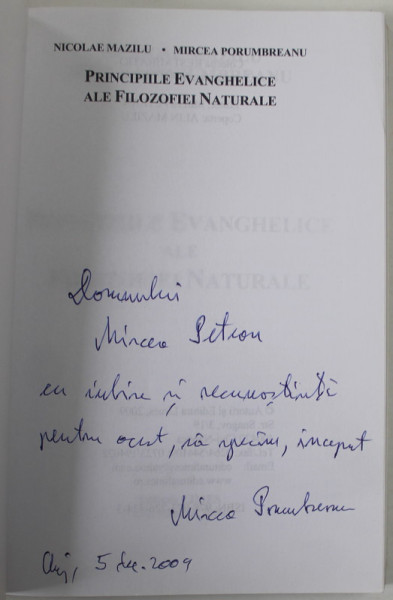 NICOLAE MAZILU • MIRCEA PORUMBREANU
PRINCIPIILE EVANGHELICE
ALE FILOZOFIEI NATURALE
Domnului
Mircea Petean
cu iubire și recunoștință
pentru acest, să sperăm, început
Mircea Porumbreanu
Cluj, 5 dec. 2009